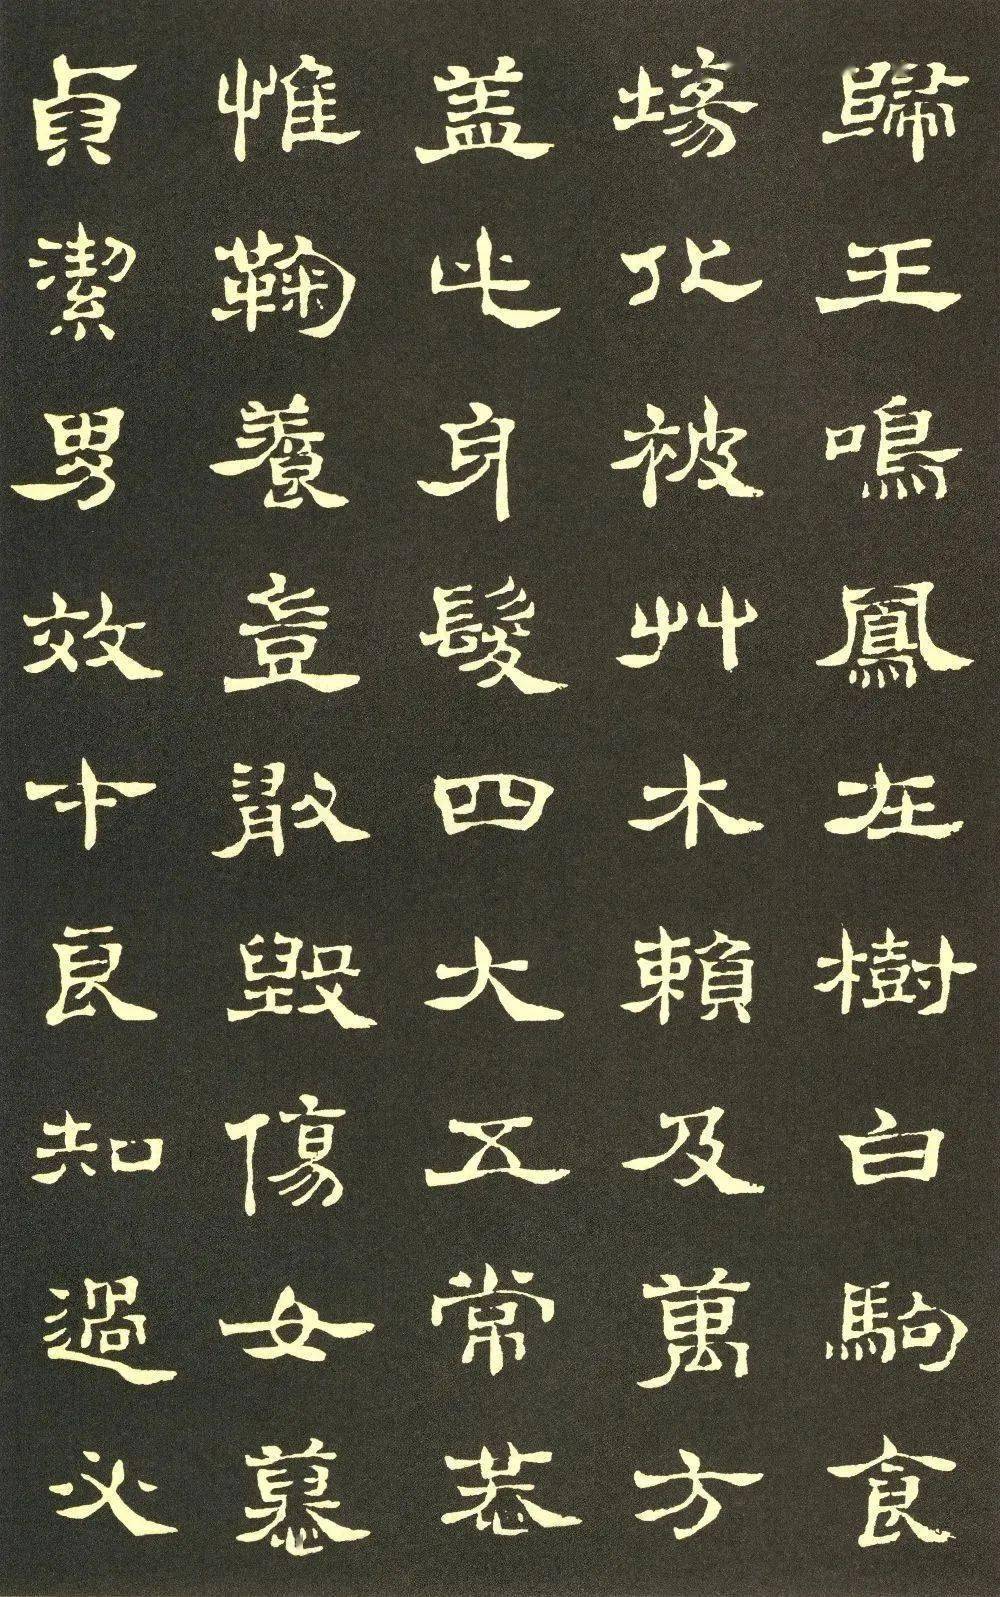 歸王鳴鳳在樹白駒食
場化被艸木賴及萬方
盖此身髮四大五常恭
惟鞠養豈敢毀傷女慕
貞潔男效才良知過必